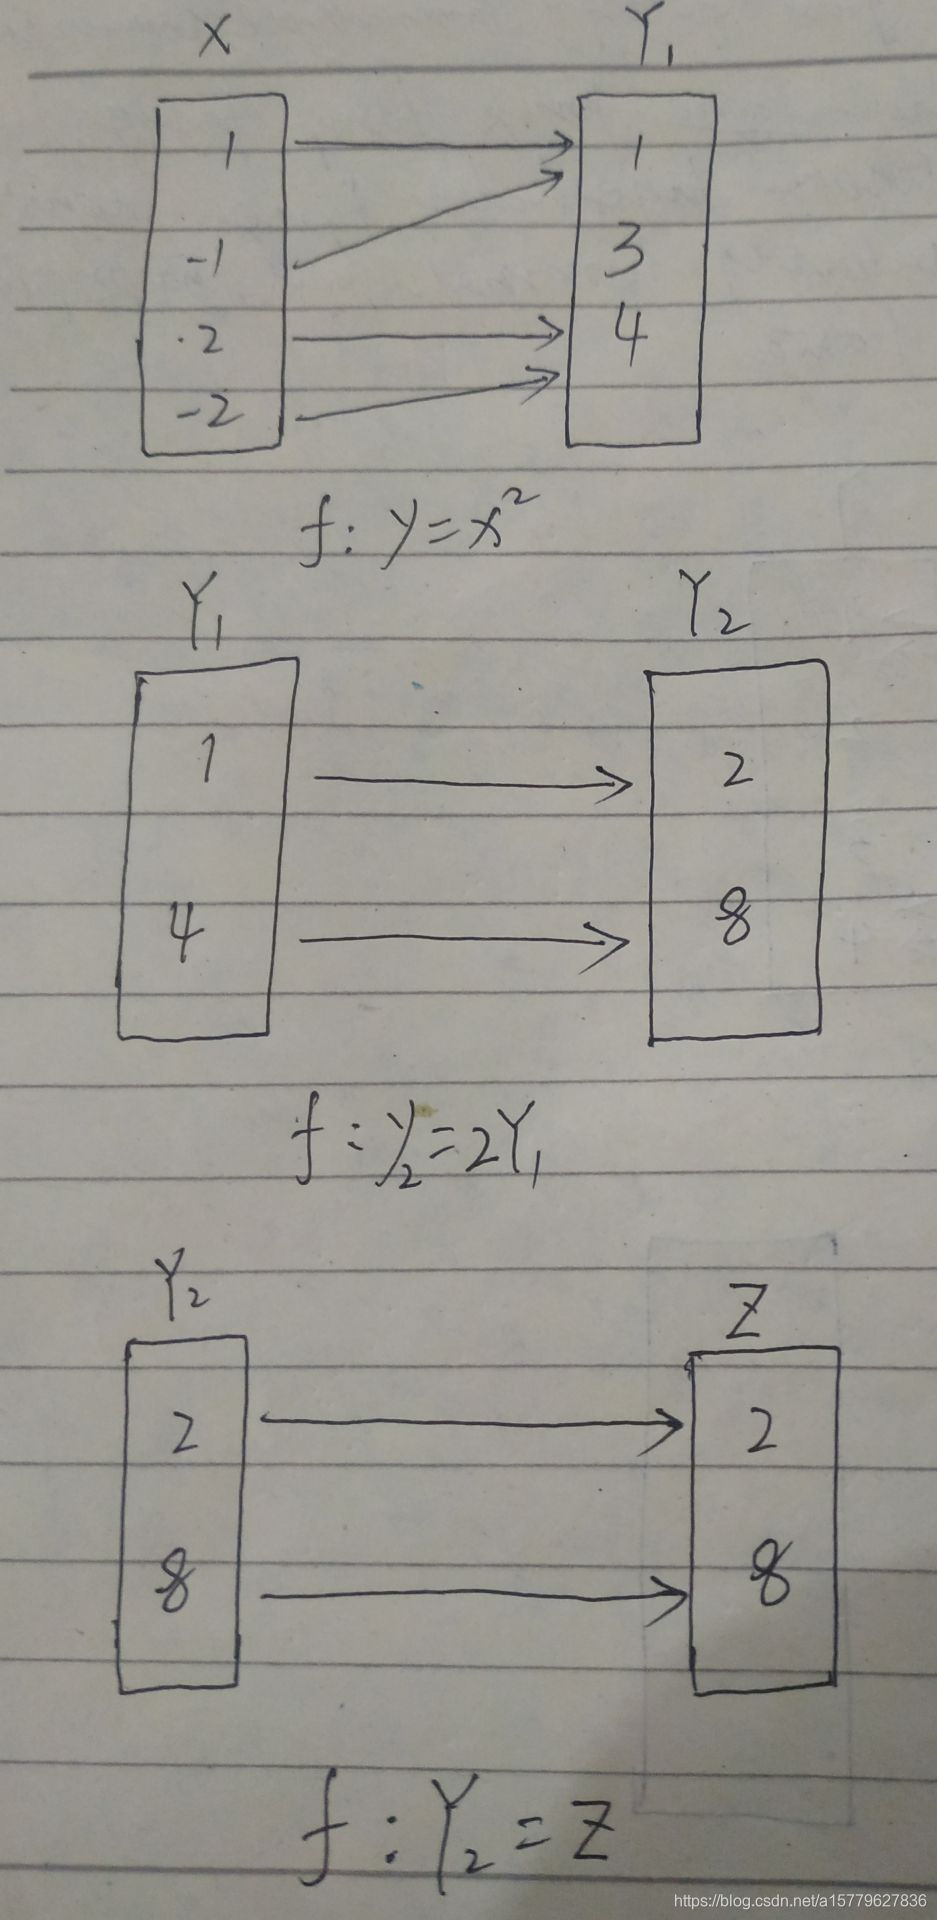 X Y₁
1 1
-1 3
·2 4
-2
f: y=x²
Y₁ Y₂
1 2
4 8
f: y₂=2Y₁
Y₂ Z
2 2
8 8
f: Y₂=Z
https://blog.csdn.net/a15779627836